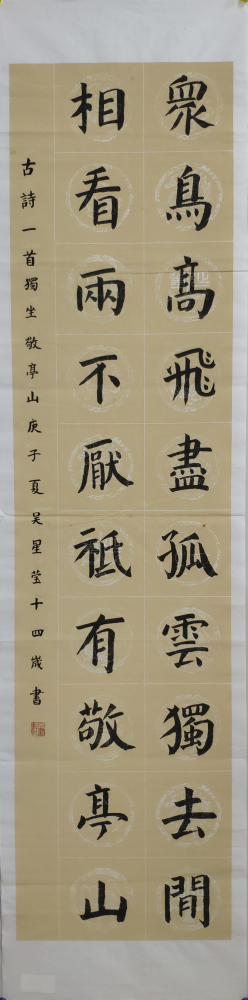 眾鳥高飛盡孤雲獨去閒
相看兩不厭祗有敬亭山
古詩一首獨坐敬亭山庚子夏吴星莹十四歲書